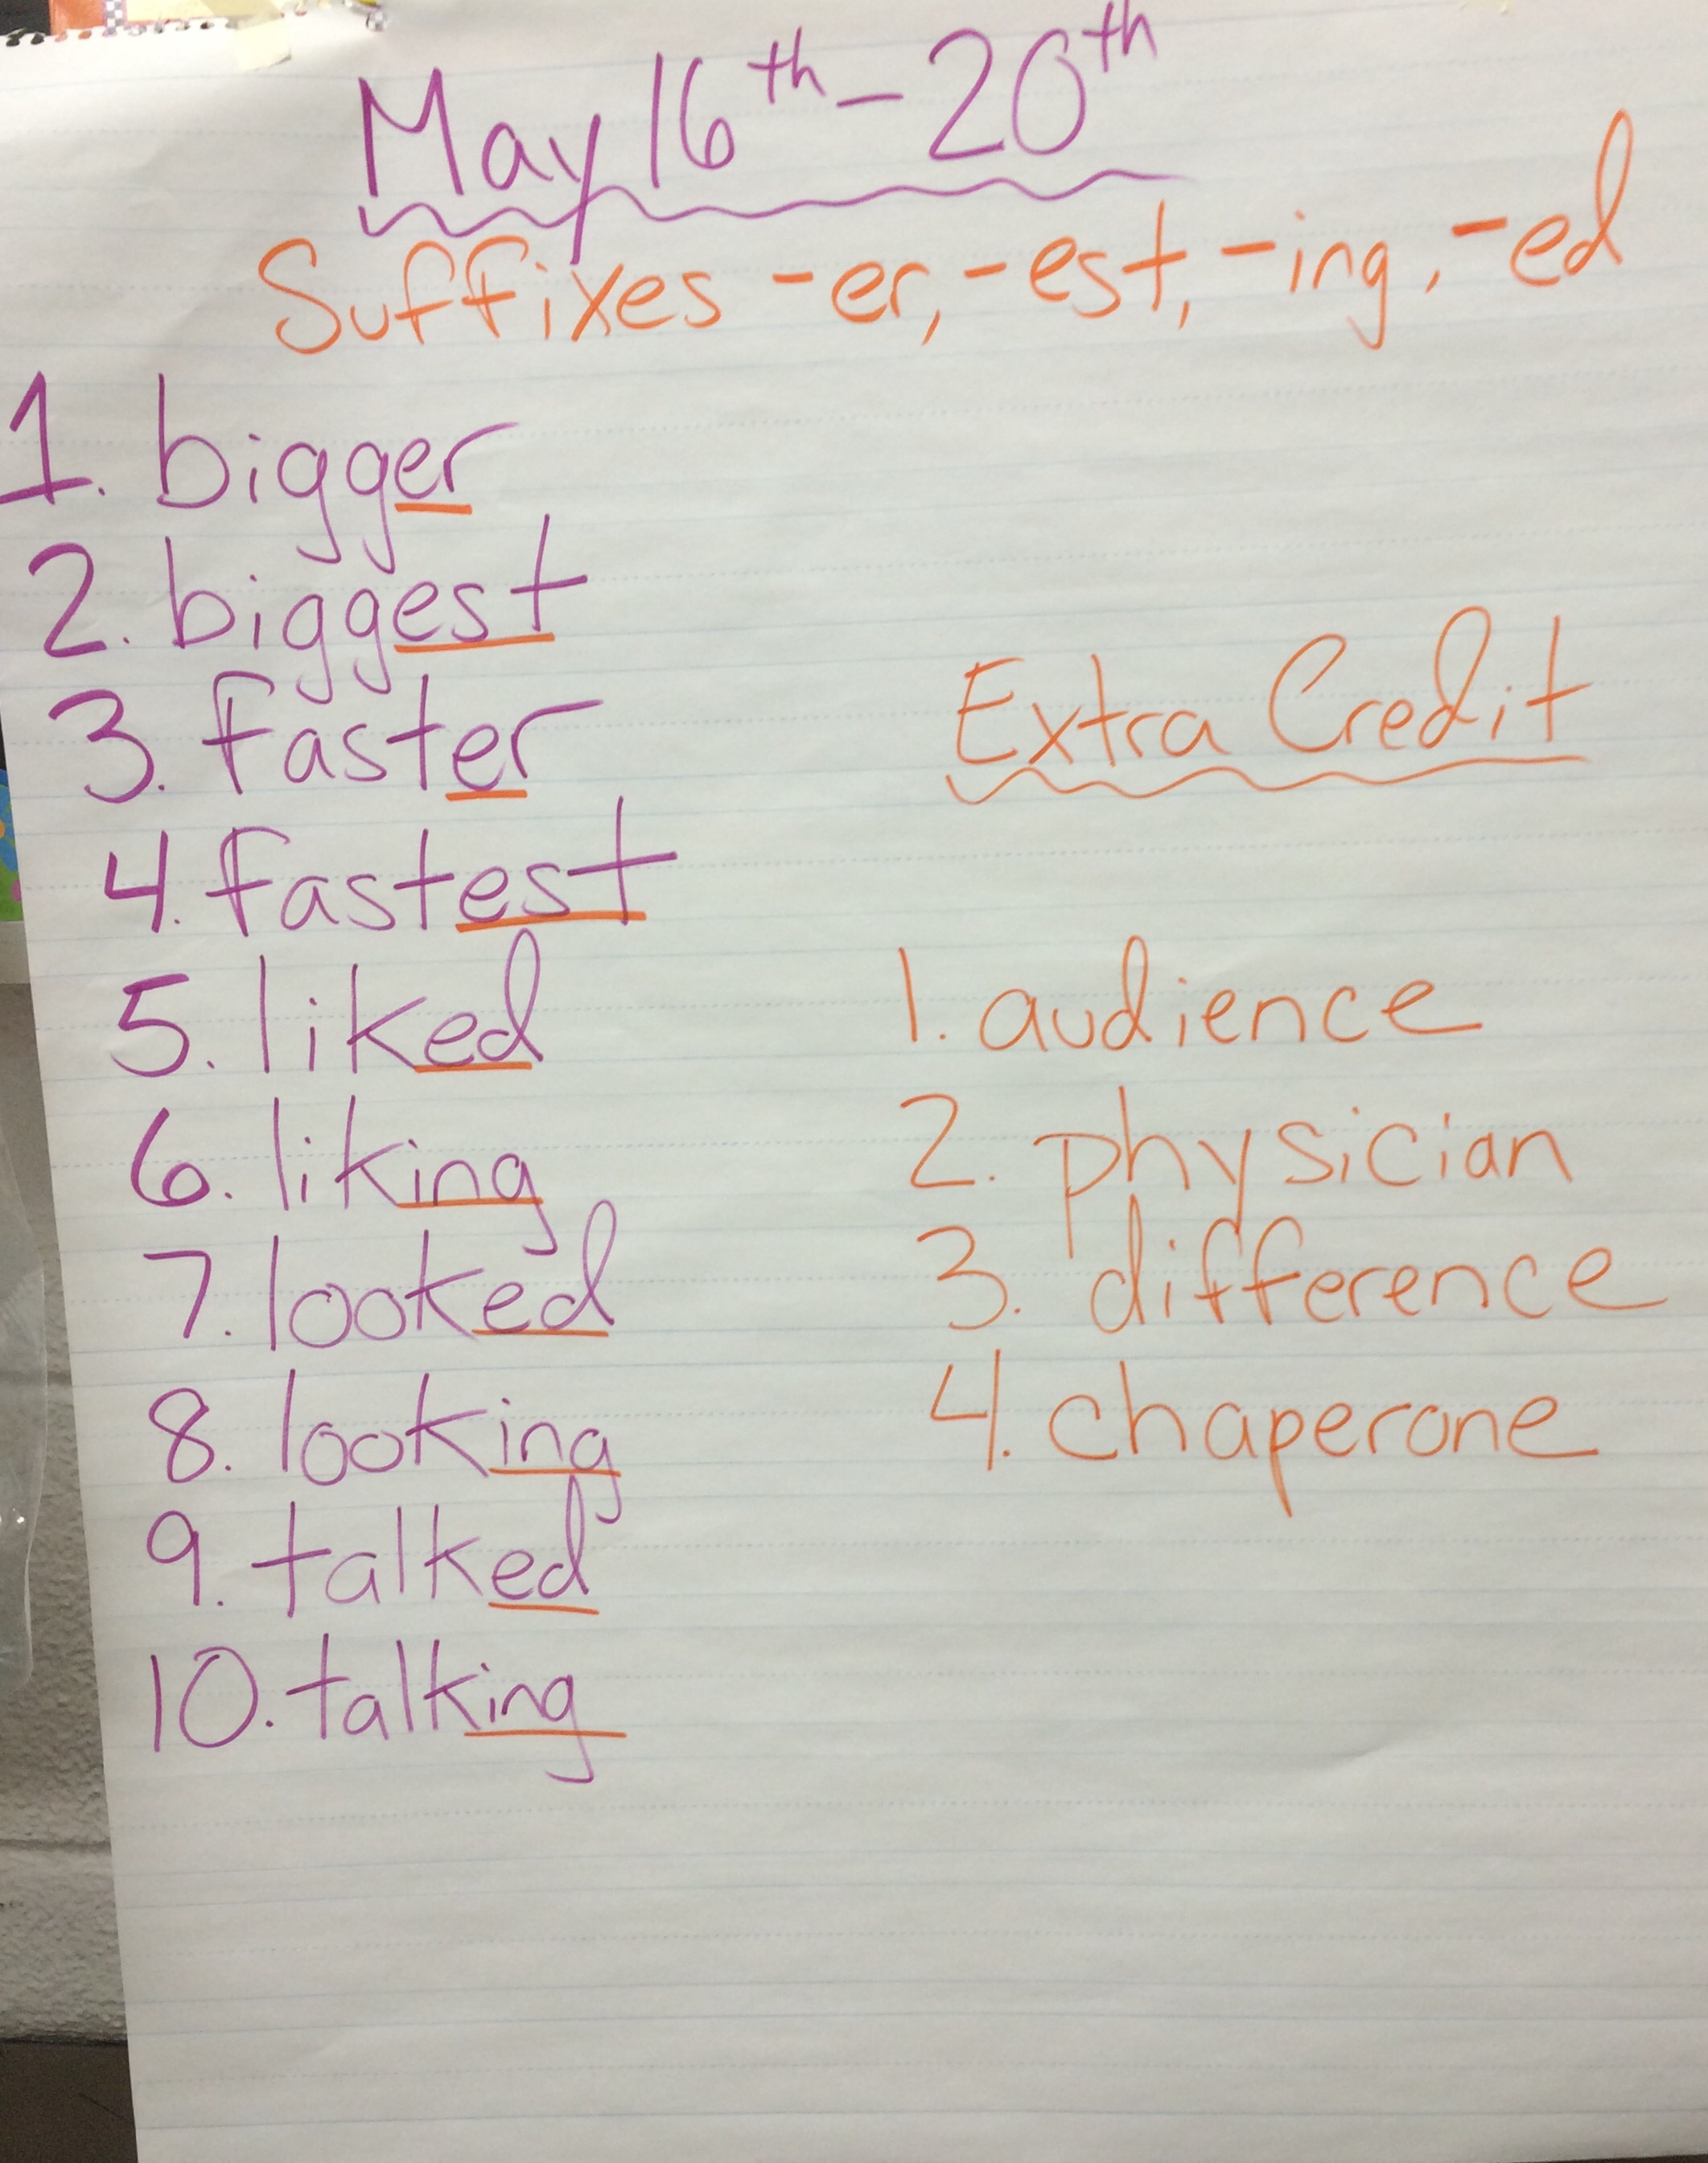 May 16th - 20th
Suffixes -er, -est, -ing, -ed
1. bigger
2. biggest
3. faster
4. fastest
5. liked
6. liking
7. looked
8. looking
9. talked
10. talking
Extra Credit
1. audience
2. physician
3. difference
4. chaperone